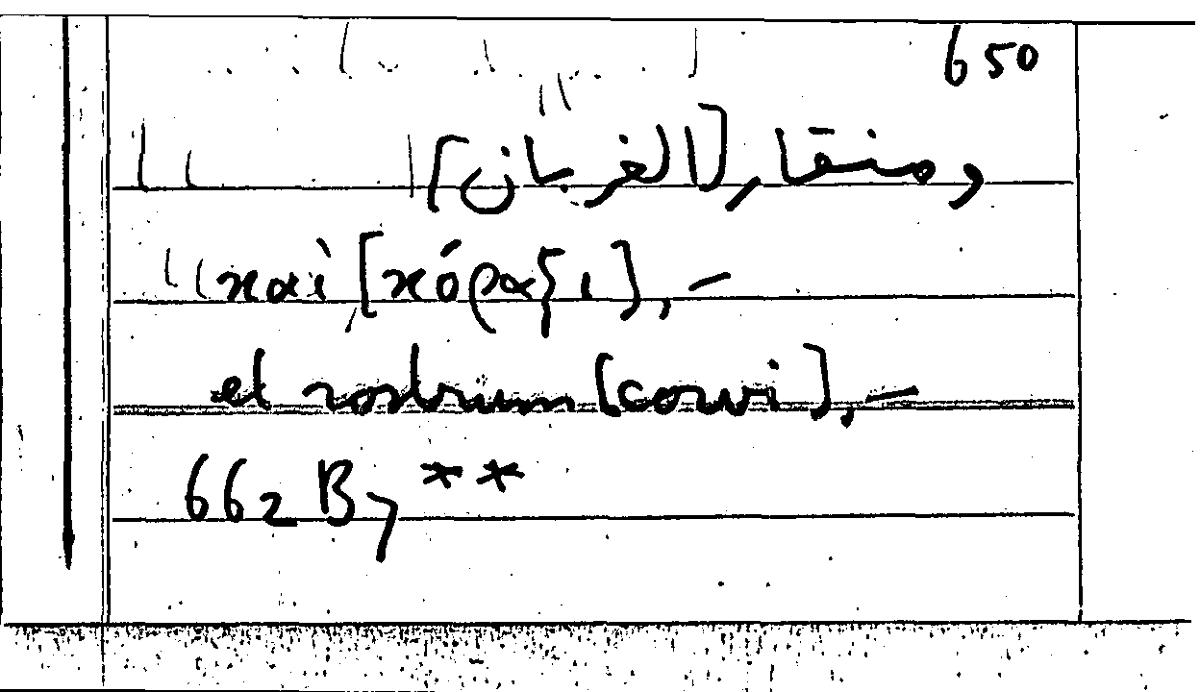 650
ومنقار [الغربان]
καὶ [κόραξι], –
et rostrum [corvi], –
662 B 7 **